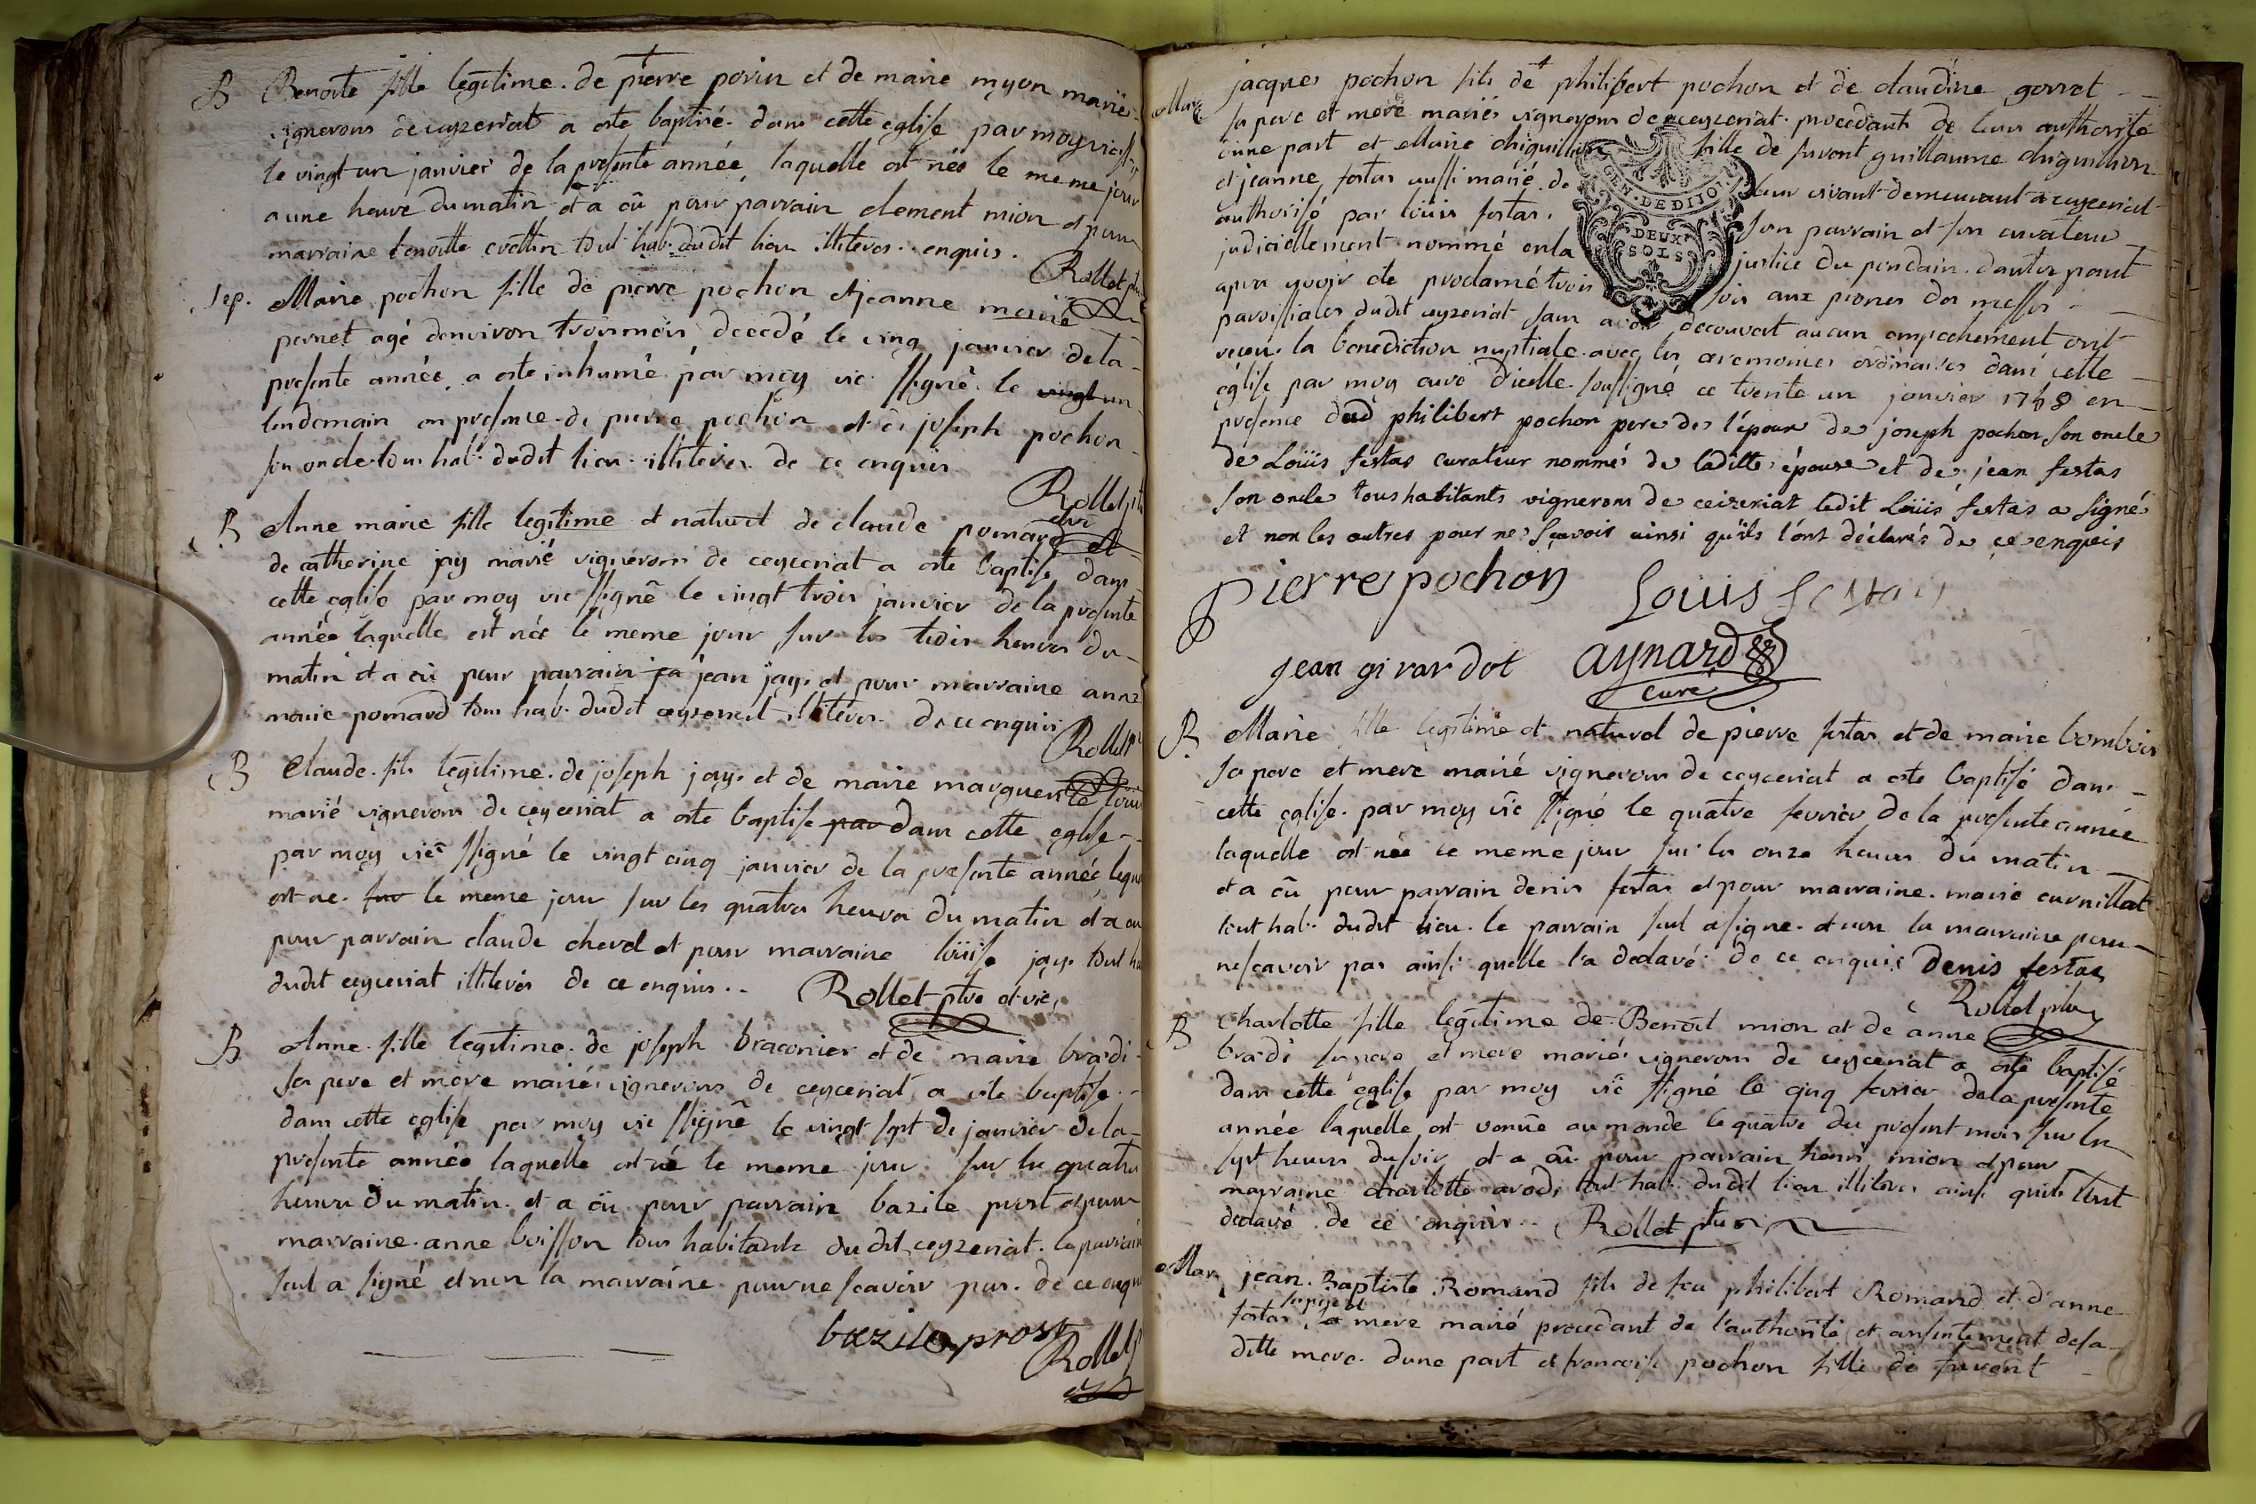 B Benoite fille legitime de pierre perin et de marie myon mariés
vignerons de ceyzeriat a esté baptisé dans cette eglise par moy
le vingt un janvier de la presente année, laquelle est née le meme jour
a une heure du matin et a eû pour parrain clement mion et pour
marraine benoitte tout hab. dudit lieu illiteres enquis.
Rollet
Sep. Marie pochon fille de pierre pochon et jeanne marie
pernet agé denviron trois mois, decedé le cinq janvier de la
presente année, a esté inhumé par moy vic ssigné le vingt un
lendemain en presence de pierre pochon et de joseph pochon
son oncle tous hab. dudit lieu illiteres de ce enquis
Rollet
B Anne marie fille legitime et naturel de claude pomard et
de catherine jay marié vignerons de ceyceriat a esté baptisé dans
cette eglise par moy vic ssigné le vingt trois janvier de la presente
année laquelle est née le meme jour sur les trois heures du
matin et a eû pour parrain sa jean jay et pour marraine anne
marie pomard tous hab. dudit ceyzeriat illiteres de ce enquis
Rollet
B Claude fils legitime de joseph jay et de marie marguerite
marié vignerons de ceyceriat a esté baptisé par dans cette eglise
par moy vic ssigné le vingt cinq janvier de la presente année, lequel
est né sur le meme jour sur les quatres heures du matin et a eu
pour parrain claude chevel et pour marraine loüise jay tout
dudit ceyceriat illiteres de ce enquis.
Rollet ptre et vic
B Anne fille legitime de joseph braconier et de marie braidi
sa pere et mere mariés vignerons de ceyceriat a esté baptisé
dans cette eglise par moy vic ssigné le vingt sept de janvier de la
presente année laquelle est né le meme jour sur les quatre
heures du matin et a eû pour parrain bazile prost et pour
marraine anne boisson tous habitants dudit ceyzeriat le parrain
seul a signé et non la marraine pour ne scavoir pas de ce enquis
bazile prost
Rollet
Mar jacques pochon fils de philibert pochon et de claudine gorret
sa pere et mere mariés vignerons de ceyceriat procedants de leurs authorité
dune part et Marie chiguillon fille de furent guillaume chiguillon
et jeanne festas aussi marié de leur vivant demeurant a ceyceriat
authorisé par loüis festas son parrain et son curateur
judiciellement nommé en la justice du pondain. dautre part
apres avoir eté proclamé trois fois aux prones des messes
paroissiales dudit ceyzeriat sans avoir decouvert aucun empechement ont
receu la benediction nuptiale avec les ceremonies ordinaires dans cette
eglise par moy curé d'icelle soussigné ce trente un janvier 1768 en
presence dud philibert pochon pere de l'epoux de joseph pochon son oncle
de Loüis festas curateur nommé de laditte épouse et de jean festas
son oncle tous habitants vignerons de ceizeriat ledit Loüis festas a signé
et non les autres pour ne sçavoir ainsi qu'ils l'ont déclarés de ce enquis
pierre pochon Louis festas
jean girardot aynard
curé
GEN. DE DIJON
DEUX
SOLS
B Marie fille legitime et naturel de pierre festas et de marie bombois
sa pere et mere marié vignerons de ceyceriat a esté baptisé dans
cette eglise par moy vic ssigné le quatre fevrier de la presente année
laquelle est née ce meme jour sur les onze heures du matin
et a eû pour parrain denis festas et pour marraine marie curnillat
tout hab. dudit lieu le parrain seul a signé et non la marraine pour
ne scavoir pas ainsi quelle l'a declaré de ce enquis Denis festas
Rollet ptre
B Charlotte fille legitime de Benoit mion et de anne
braidi sa pere et mere mariés vignerons de ceyceriat a esté baptisé
dans cette eglise par moy vic ssigné le cinq fevrier de la presente
année laquelle est venüe au monde le quatre du present mois sur les
sept heures du soir et a eû pour parrain mion et pour
marraine charlotte tout hab. dudit lieu illiteres ainsi quils l'ont
declaré de ce enquis Rollet ptre
Mar jean Baptiste Romand fils de feu philibert Romand et d'anne
sa pere et
festas, sa mere marié procedant de l'authorité et consentement de sa
ditte mere dune part et francoise pochon fille de furent